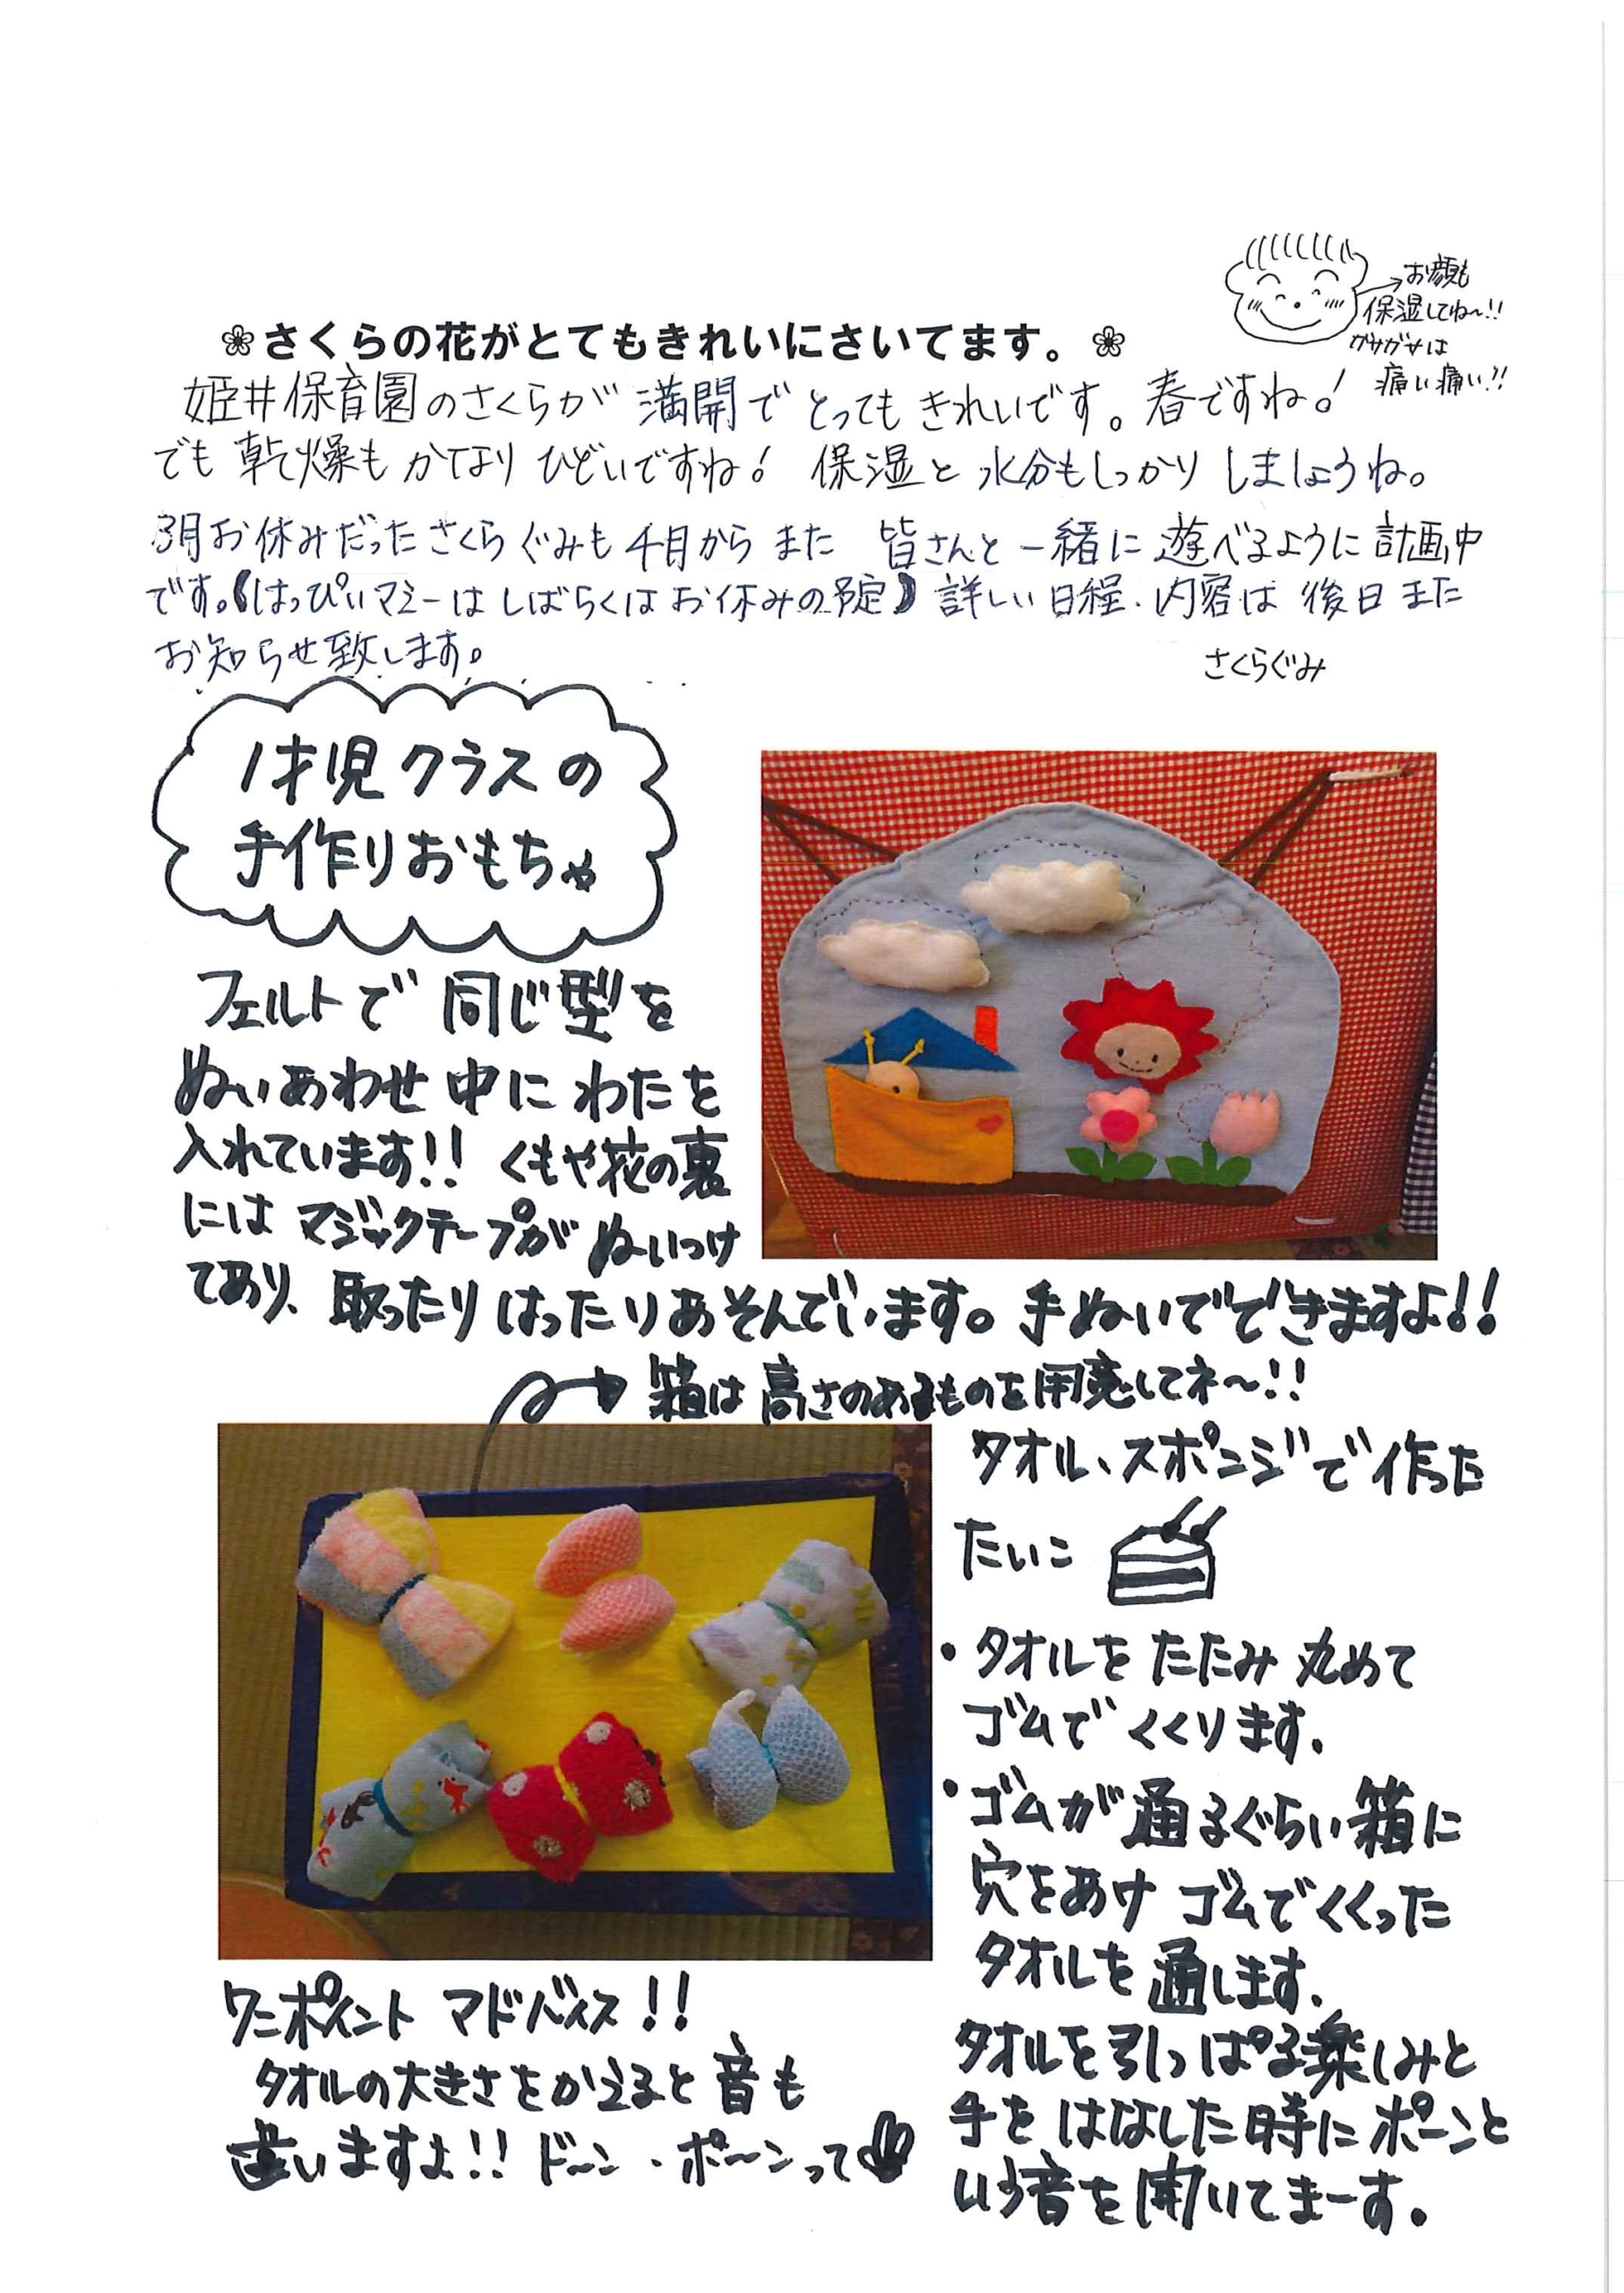 お顔も
保湿してね〜!!
ガサガサは
痛い痛い!!
❀さくらの花がとてもきれいにさいてます。❀
姫井保育園のさくらが満開でとってもきれいです。春ですね!
でも乾燥もかなりひどいですね! 保湿と水分もしっかりしましょうね。
3月お休みだったさくらぐみも4月からまた 皆さんと一緒に遊べるように計画中
です。(はっぴぃマミーはしばらくはお休みの予定)詳しい日程.内容は後日また
お知らせ致します。
さくらぐみ
1才児クラスの
手作りおもちゃ
フェルトで同じ型を
ぬいあわせ中にわたを
入れています!! くもや花の裏
にはマジックテープがぬいつけ
てあり、取ったりはったりあそんでいます。手ぬいでできますよ!!
箱は高さのあるものを用意してネ〜!!
タオル、スポンジで作った
たいこ
・タオルをたたみ丸めて
ゴムでくくります.
・ゴムが通るぐらい箱に
穴をあけゴムでくくった
タオルを通します.
タオルを引っぱる楽しみと
手をはなした時にポーンと
いう音を聞いてまーす。
ワンポイントアドバイス!!
タオルの大きさをかえると音も
違いますよ!! ド〜ン・ポ〜ンって